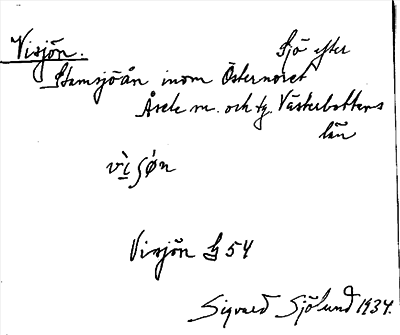 Visjön. Sjö efter
Stamsjöån inom Östernoret
Åsele sn. och tg. Västerbottens
län
vìʃón
Visjön 54
Sigvard Sjölund 1934.